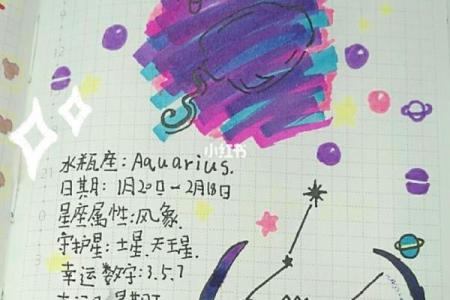 小红书
水瓶座：Aquarius.
日其月：1月20日－2月18日
星座属性：风象
守护星：土星.天王星.
幸运数字：3.5.7